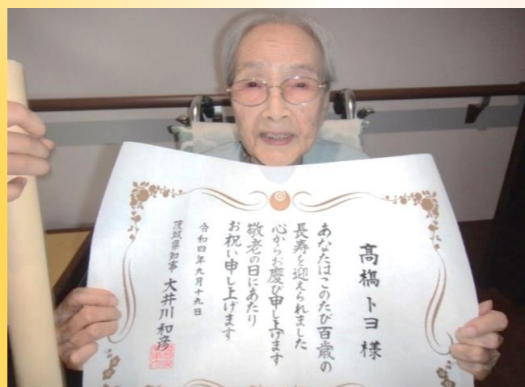 高橋トヨ様
あなたはこのたび百歳の
長寿を迎えられました
心からお慶び申し上げます
敬老の日にあたり
お祝い申し上げます
令和四年九月十九日
茨城県知事 大井川和彦